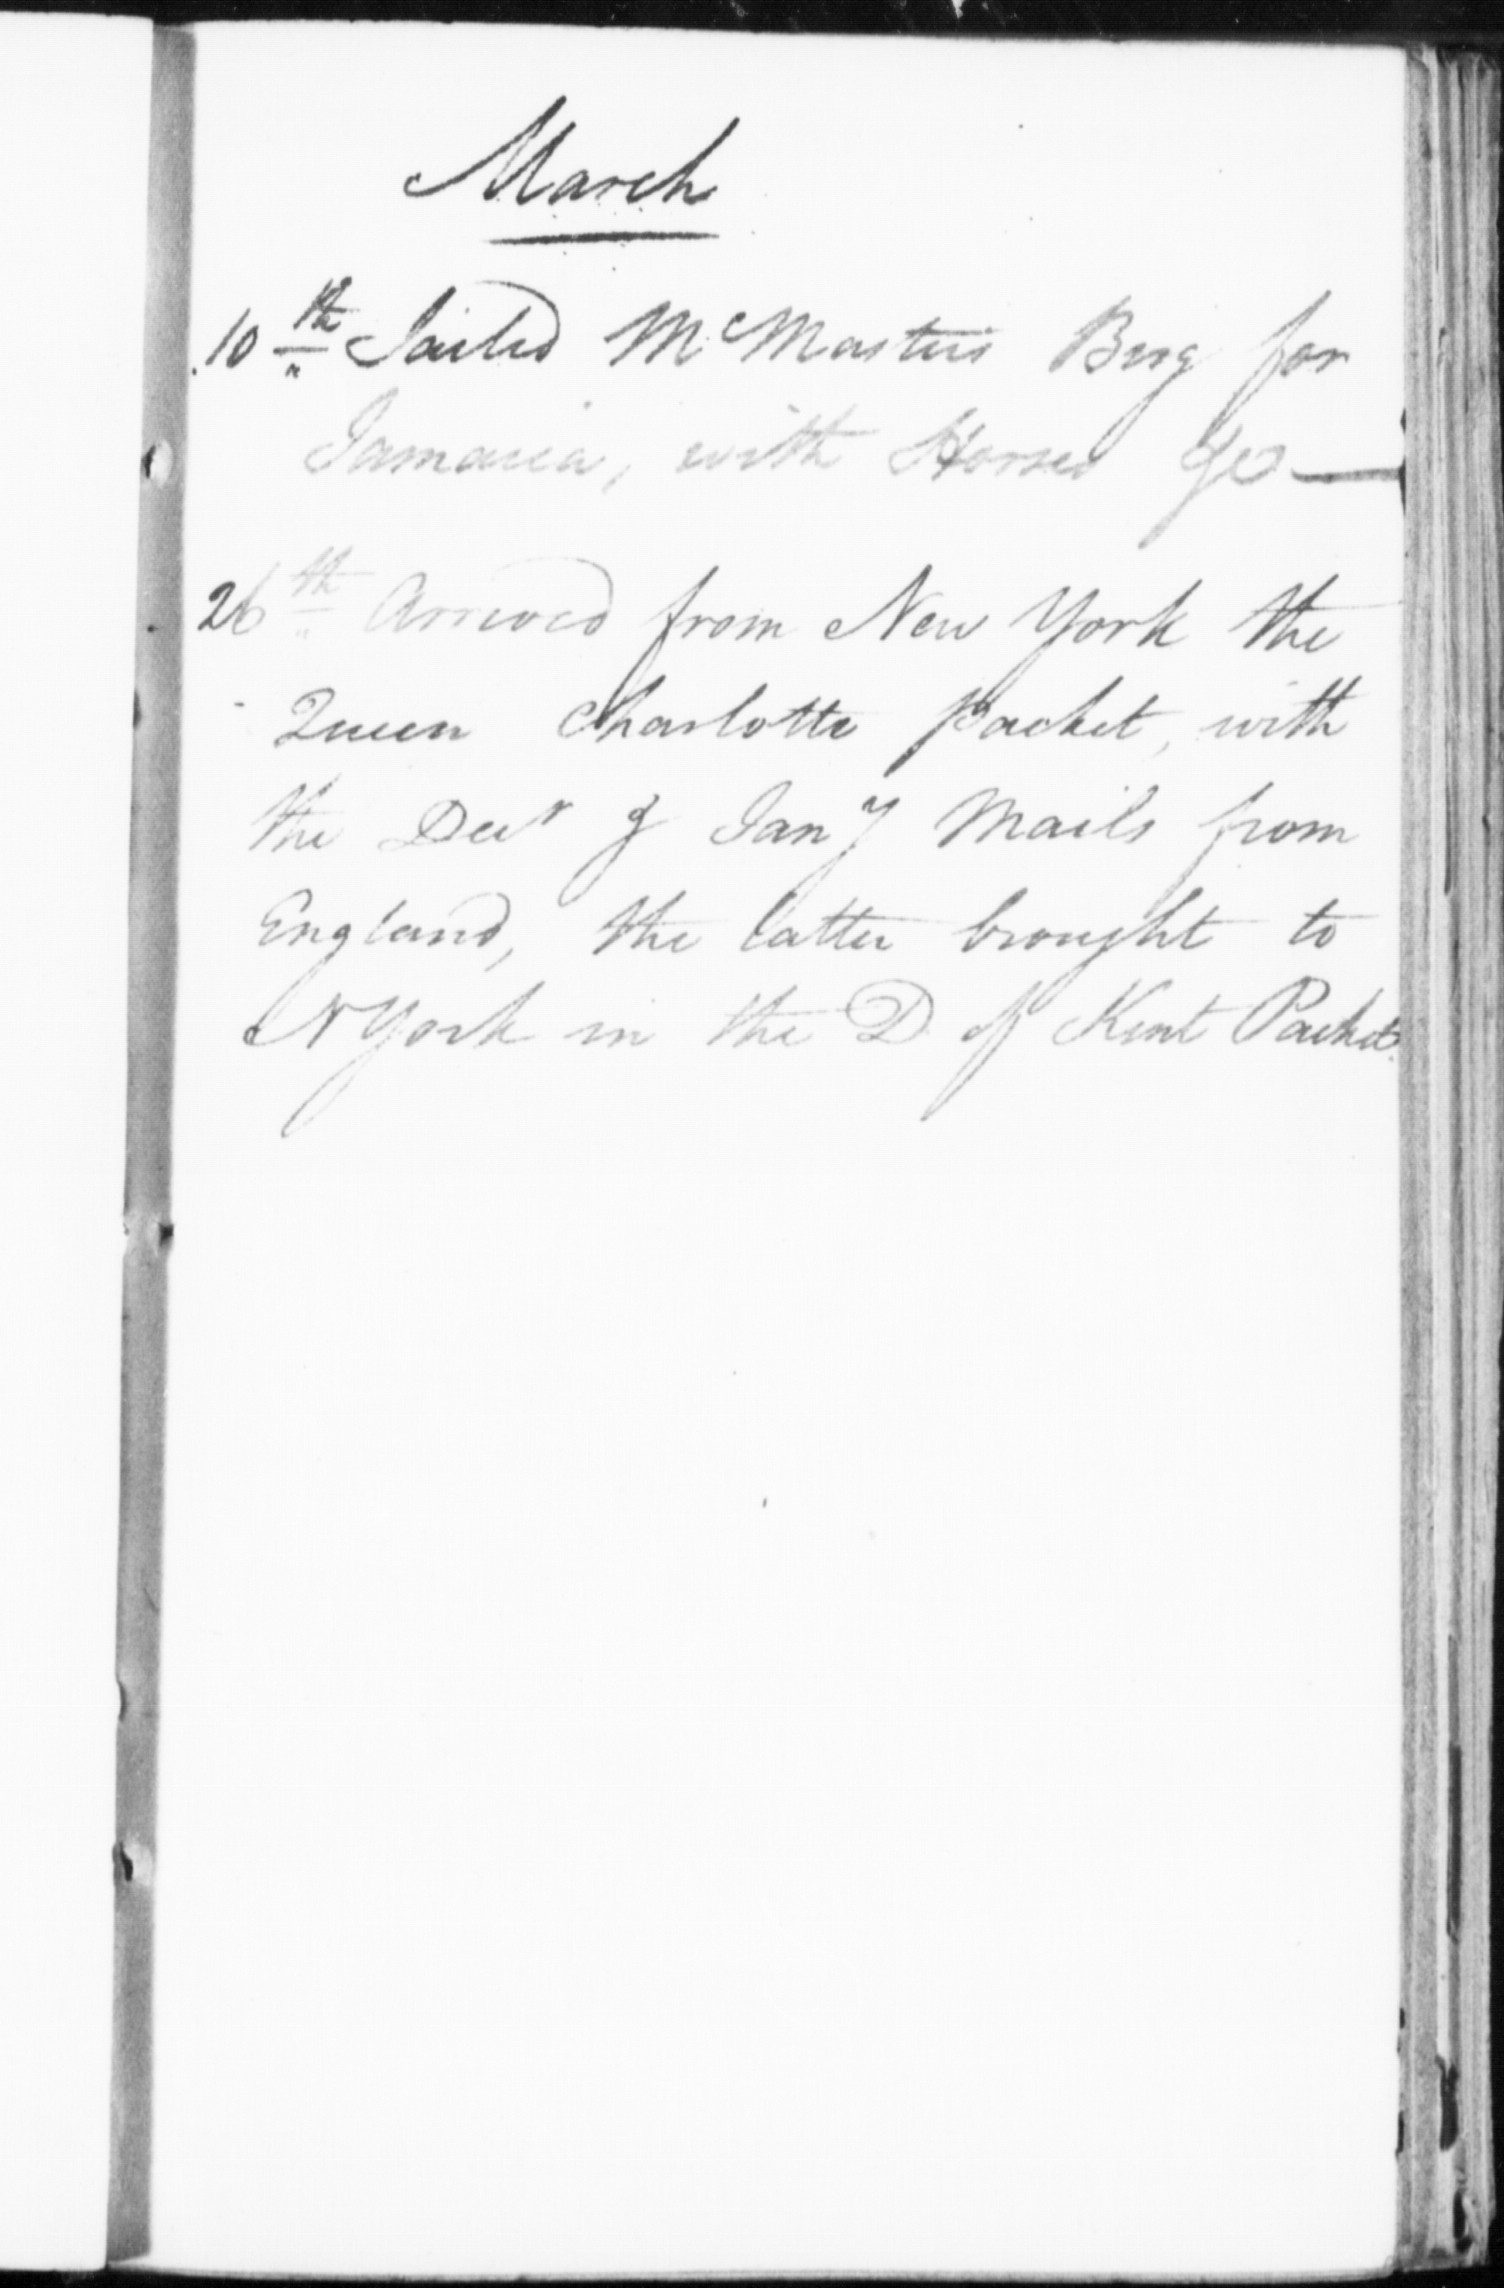 March
10th Sailed McMasters Brig for
Jamaica, with Horses &c —
26th Arrived from New York the
Queen Charlotte packet, with
the Decr & Jany Mails from
England, the latter brought to
N York in the D of Kent Packet.